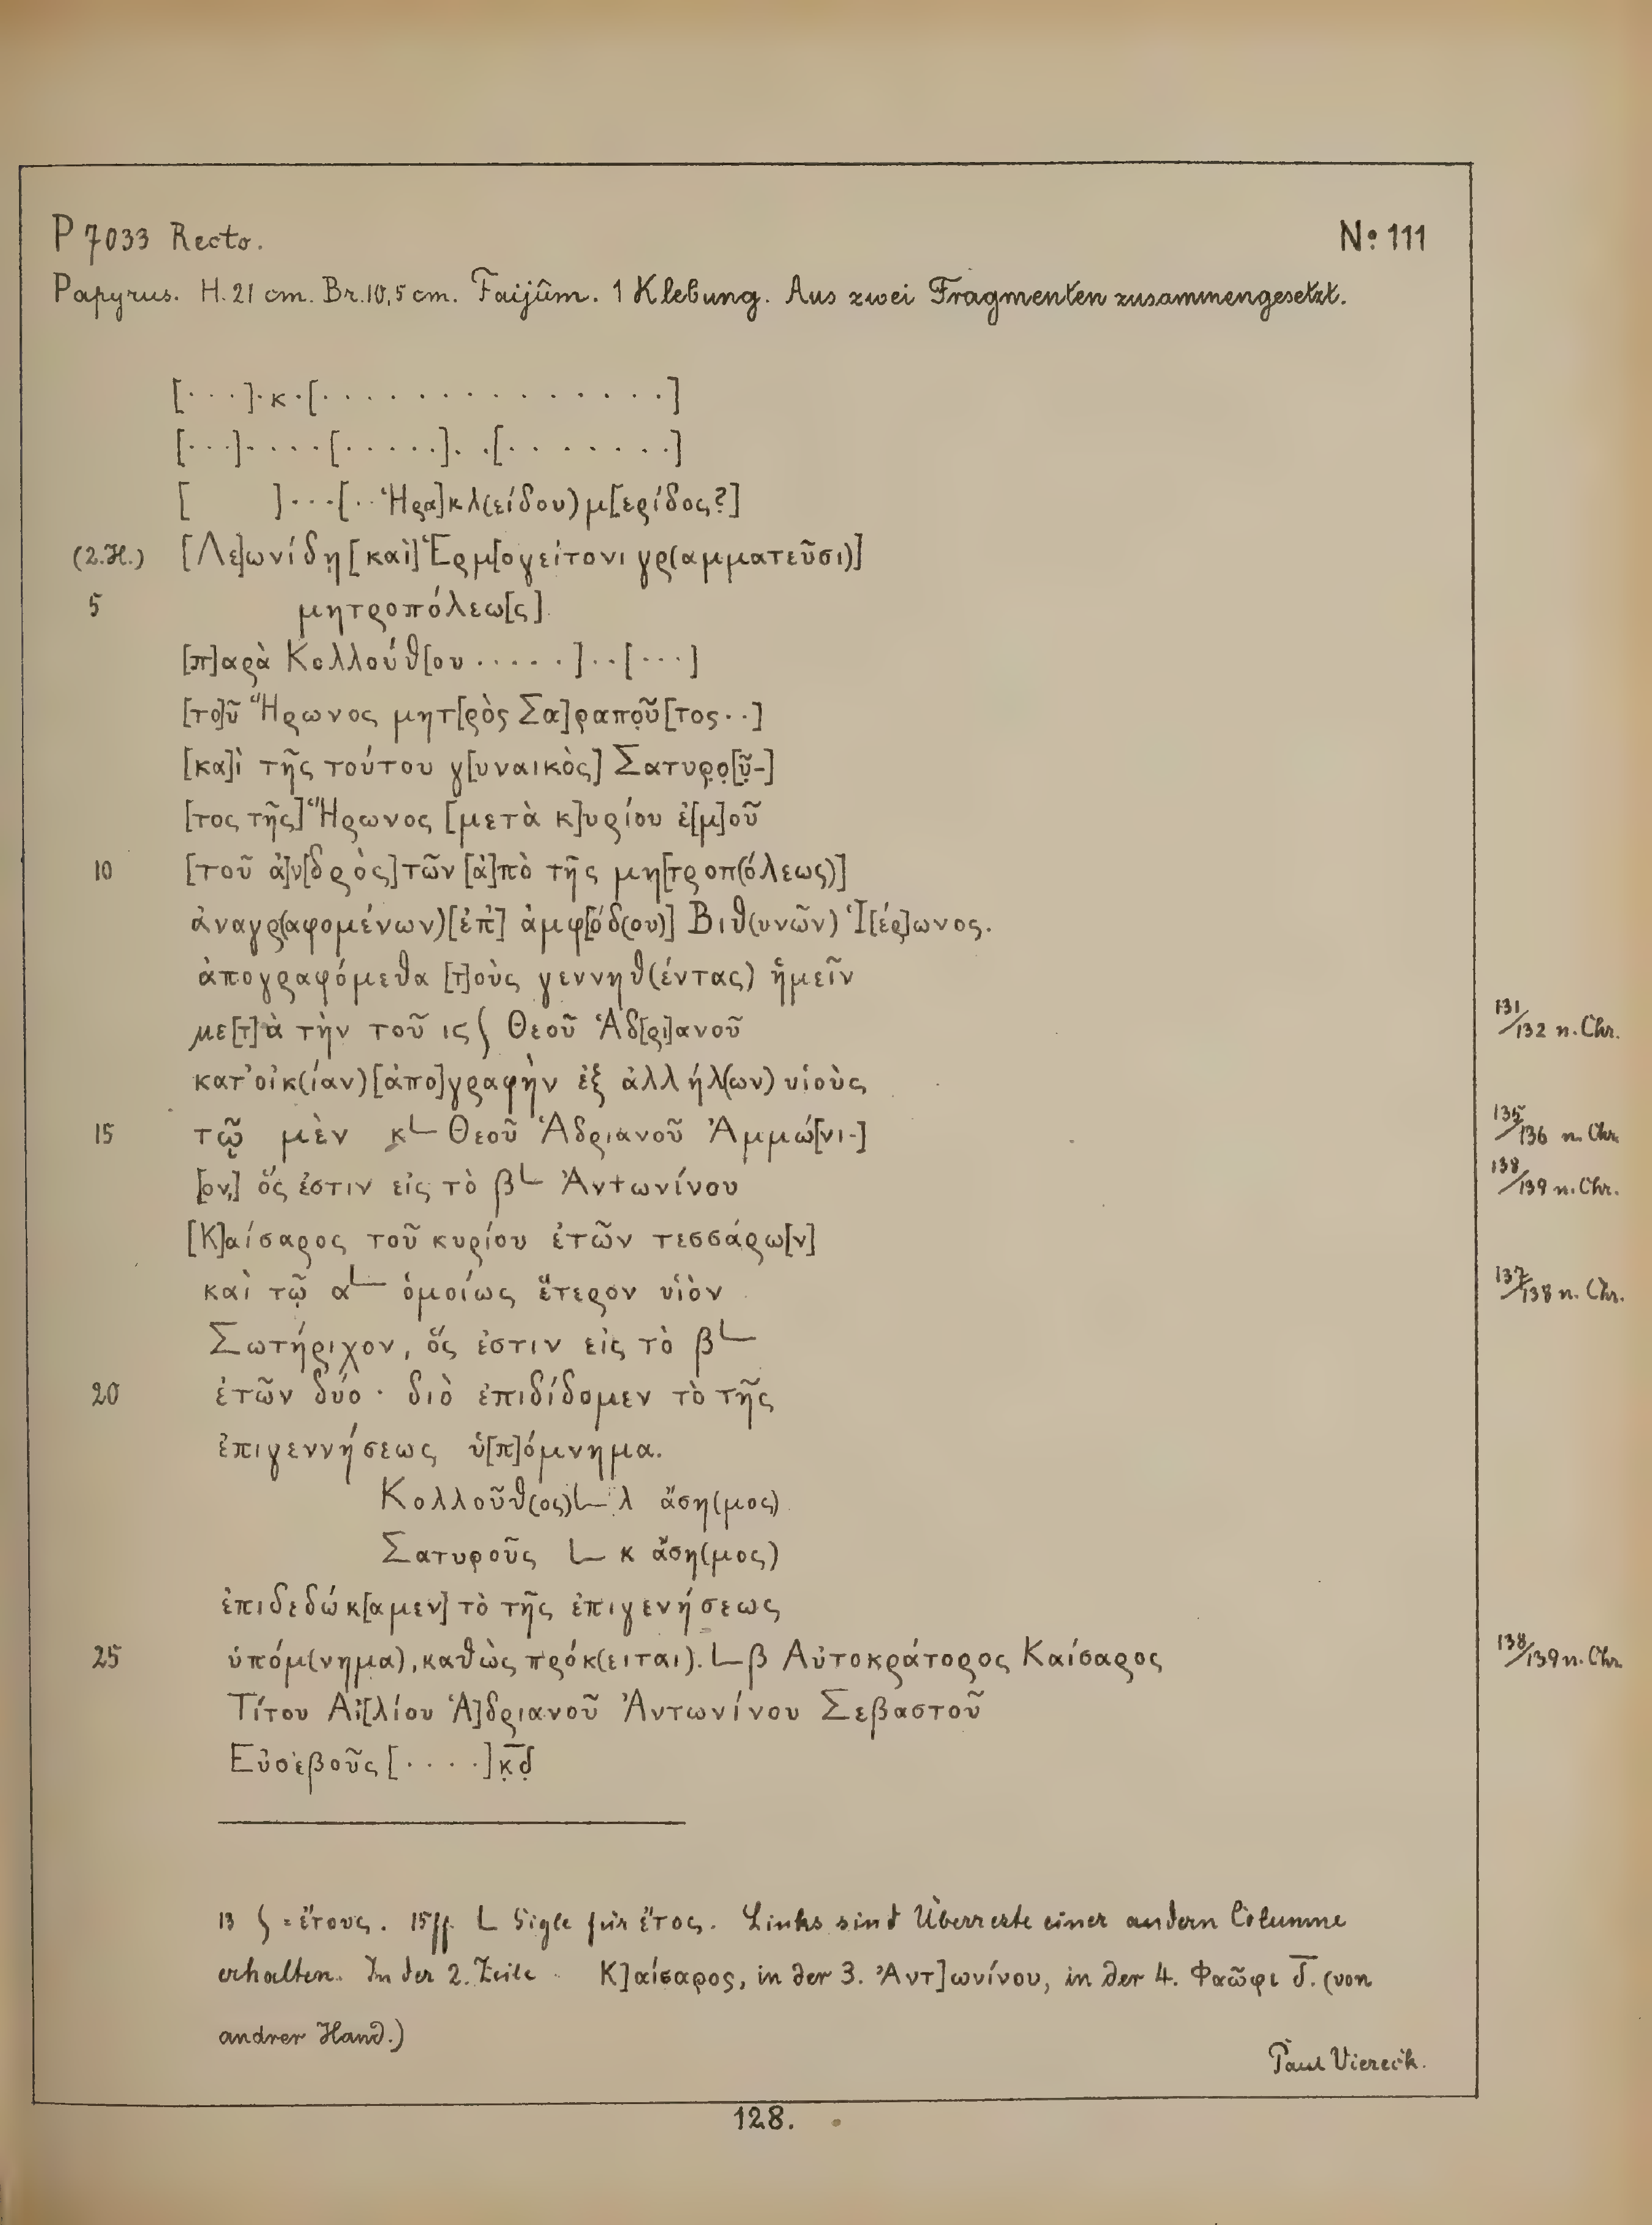 P 7033 Recto. Nº 111
Papyrus. H. 21 cm. Br. 10,5 cm. Faijûm. 1 Klebung. Aus zwei Fragmenten zusammengesetzt.
[· · ·]·κ·[· · · · · · · · · · · · · · ·]
[· · ·]· · · ·[· · · · ·]· ·[· · · · · · ·]
[ ]· · ·[· · Ἡρα]κλ(είδου) μ[ερίδος?]
(2.H.) [Λε]ωνίδῃ [καὶ] Ἑρμ[ογείτονι γρ(αμματεῦσι)]
5 μητροπόλεω[ς].
[π]αρὰ Κολλούθ[ου · · · · · ]· ·[· · ·]
[το]ῦ Ἥρωνος μητ[ρὸς Σα]ραπο̣ῦ̣[τος · ·]
[κα]ὶ τῆς τούτου γ[υναικὸς] Σατυρ̣ο̣[ῦ̣-]
[τος τῆς] Ἥρωνος [μετὰ κ]υρίου ἐ[μ]οῦ
10 [τοῦ ἀ]ν[δρὸς] τῶν [ἀ]πὸ τῆς μη[τροπ(όλεως)]
ἀναγρ(αφομένων) [ἐπ᾽] ἀμφ[όδ(ου)] Βιθ(υνῶν) Ἰ[έρ]ωνος.
ἀπογραφόμεθα [τ]οὺς γεννηθ(έντας) ἡμεῖν
με[τ]ὰ τὴν τοῦ ις ʃ Θεοῦ Ἁδ[ρι]ανοῦ 131/132 n. Chr.
κατ᾽ οἰκ(ίαν) [ἀπο]γραφὴν ἐξ ἀλλήλ(ων) υἱοὺς
15 τῷ μὲν κ└ Θεοῦ Ἁδριανοῦ Ἀμμώ[νι-] 135/136 n. Chr.
[ον,] ὅς ἐστιν εἰς τὸ β└ Ἀντωνίνου 138/139 n. Chr.
[Κ]αίσαρος τοῦ κυρίου ἐτῶν τεσσάρω[ν]
καὶ τῷ α└ ὁμοίως ἕτερον υἱὸν 137/138 n. Chr.
Σωτήριχον, ὅς ἐστιν εἰς τὸ β└
20 ἐτῶν δύο · διὸ ἐπιδίδομεν τὸ τῆς
ἐπιγεννήσεως ὑ[π]όμνημα.
Κολλοῦθ(ος) └ λ ἄση(μος)
Σατυροῦς └ κ ἄση(μος)
ἐπιδεδώκ[αμεν] τὸ τῆς ἐπιγενήσεως
25 ὑπόμ(νημα), καθὼς πρόκ(ειται). └ β Αὐτοκράτορος Καίσαρος 138/139 n. Chr.
Τίτου Αἰ[λίου Ἁ]δριανοῦ Ἀντωνίνου Σεβαστοῦ
Εὐσεβοῦς [· · · ·] κ̣̅δ̣̅
13 ʃ = ἔτους. 15ff. └ Sigle für ἔτος. Links sind Überreste einer andern Columne
erhalten. In der 2. Zeile Κ]αίσαρος, in der 3. Ἀντ]ωνίνου, in der 4. Φαῶφι δ̅. (von
andrer Hand.)
Paul Viereck.
128.